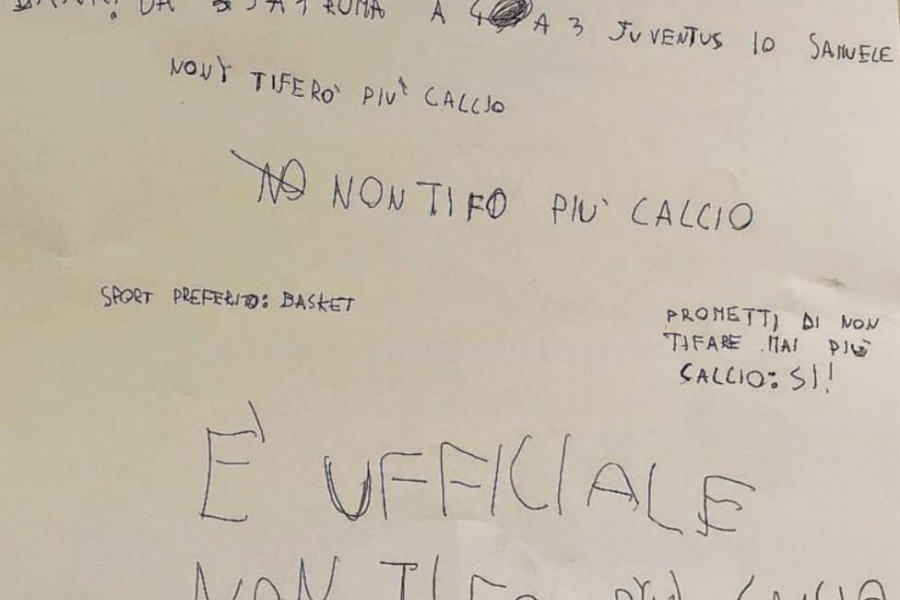 DA 3 A 1 ROMA A 4 A 3 JUVENTUS IO SAMUELE
NON TIFERO' PIU' CALCIO
NO NON TIFO PIU' CALCIO
SPORT PREFERITO: BASKET
PROMETTI DI NON
TIFARE MAI PIÙ
CALCIO: SI!
E' UFFICIALE
NON TIFO PIU' CALCIO